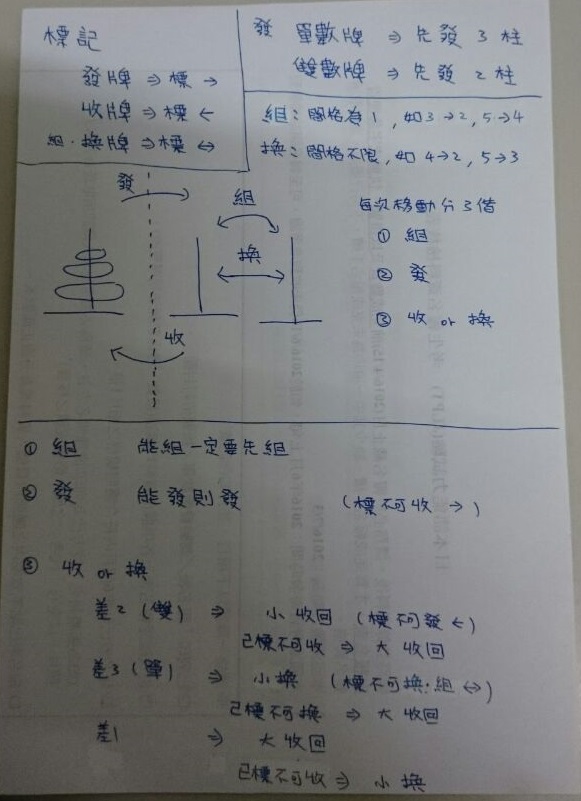 標記
發牌 ⇒ 標 →
收牌 ⇒ 標 ←
組·換牌 ⇒ 標 ↔
發 單數牌 ⇒ 先發 3 柱
雙數牌 ⇒ 先發 2 柱
組: 間格為 1, 如 3→2, 5→4
換: 間格不限, 如 4→2, 5→3
發
組
換
收
每次移動分 3 階
① 組
② 發
③ 收 or 換
① 組 能組一定要先組
② 發 能發則發 (標不可收 →)
③ 收 or 換
差2 (雙) ⇒ 小收回 (標不可發 ←)
已標不可收 ⇒ 大收回
差3 (單) ⇒ 小換 (標不可換·組 ↔)
已標不可換 ⇒ 大收回
差1 ⇒ 大收回
已標不可收 ⇒ 小換